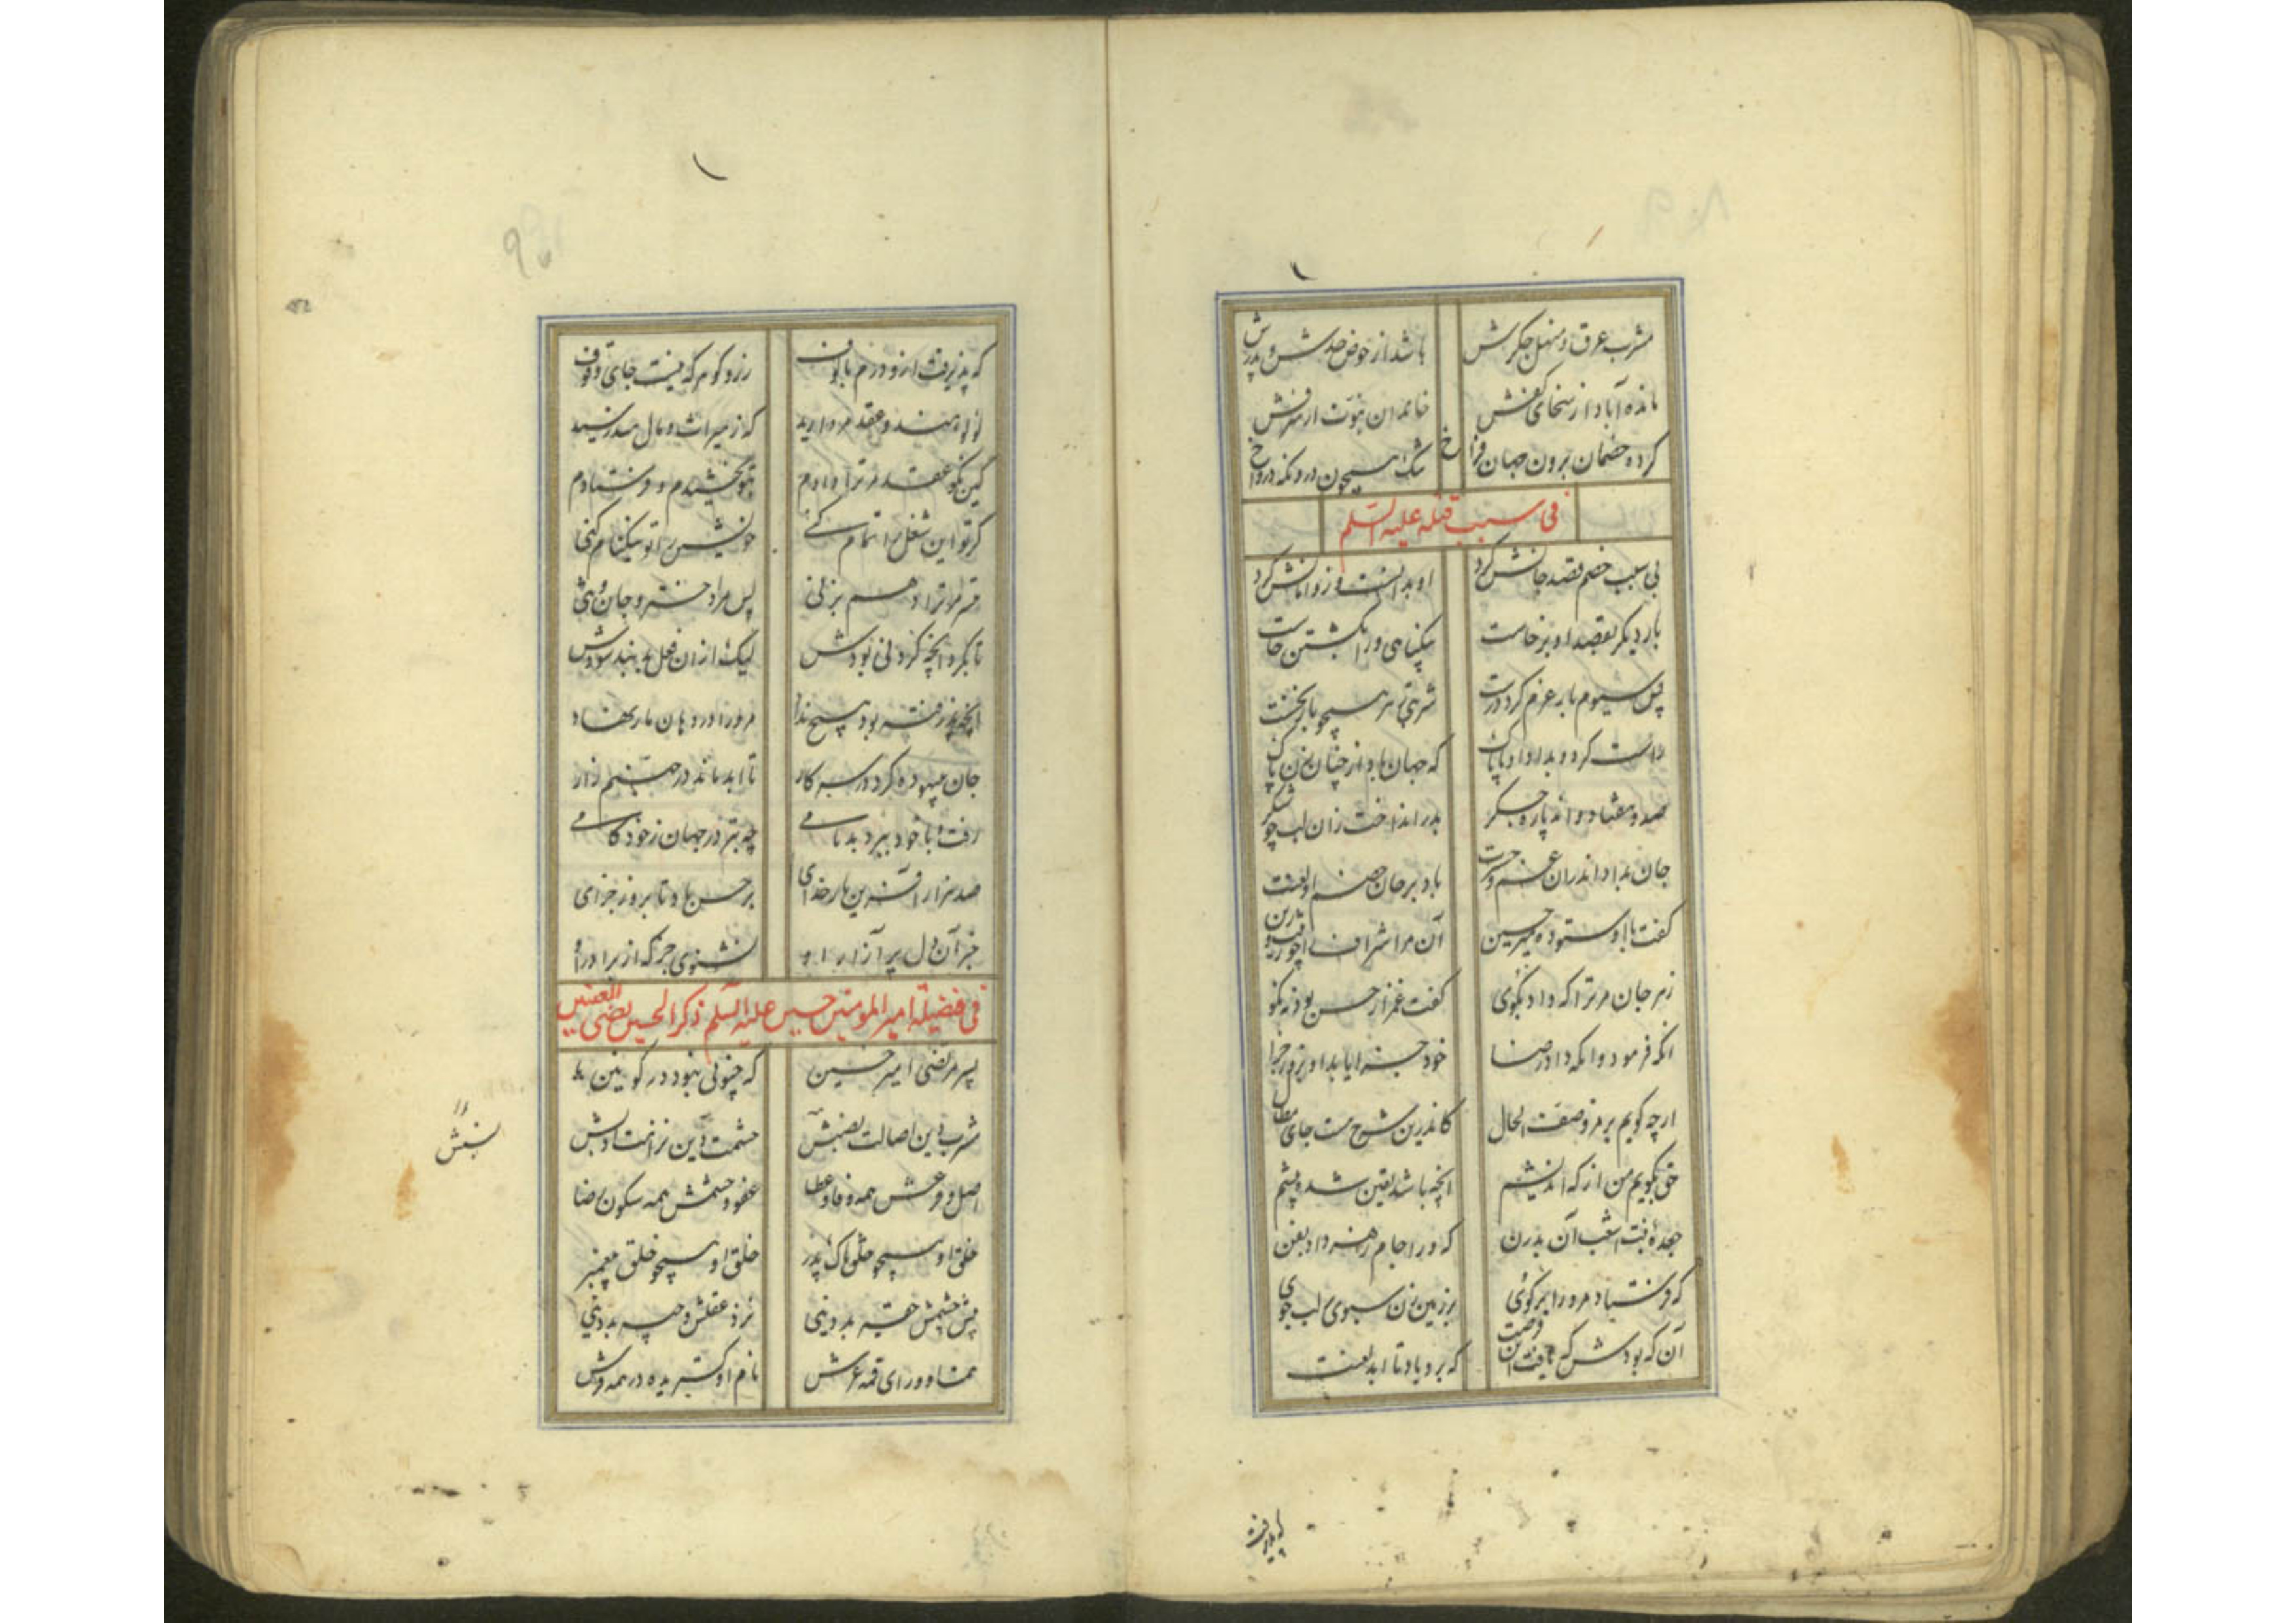 مشرب عرق و منهل جگرش    باشد از حوض جدش و پدرش
مانده آباد از سخای کفش    خاندان نبوت از شرفش
کرده خصمان برون جهان فراخ    تنگ همچون درونکه در واخ
فی سبب قتله علیه السلم
بی سبب خصم قصد جانش کرد    او بدانست و زو امانش کرد
بار دیگر بقصد او برخاست    بیگناهی ورا بکشتن خاست
پس سیوم بار عزم کرد درست    شربتی زهر همچو بار نخست
راست کرد و بداد او پاک    که جهان باد از چنان زن پاک
صد و هفتاد و اند پاره جگر    بدر انداخت زان لب چو شکر
جان بداد اندران غم و حسرت    باد بر جان خصم او لعنت
گفت با او ستوده میر حسین    آن مرا اشراف را چو زینت و زین
زهر جان مر ترا که داد بگوی    گفت غمز از حسن بود نه نکو
آنکه فرمود و آنکه داد رضا    خود جزا یابد او بروز جزا
ار چه گویم برمز وصف الحال    کاندرین شرح هست جای مقال
حق بگویم من از که اندیشم    آنچه باشد یقین شده پیشم
جعده بنت اشعث آن بد زن    که ورا جام زهر داد بفن
که فرستاد مر ورا بر گوی    بر زمین زن سبوی لب جوی
آن که بودش که یافت این فرصت    که برو باد تا ابد لعنت
که پذیرفت
که پذیرفت ازو درم بالوف    زر و گوهر که نیست جای وقوف
لولو هند و عقد مروارید    که ز میراث و مال هند رسید
کین نکو عقد مر ترا دادم    بتو بخشیدم و فرستادم
گر تو این شغل را تمام کنی    خویشتن را تو نیکنام کنی
مر ترا هم بزنی    پس مرا دختر و جان و تنی
تا بکرد آنچه کردنی بودش    لیک از ان فعل بد نبد سودش
آنچه پذرفته بود هیچ نداد    مر ورا در دهان مار نهاد
جان بیهوده کرد در سر کار    تا ابد ماند در جهنم زار
رفت و با خود ببرد بدنامی    چه بتر در جهان ز خودکامی
صد هزار آفرین بار خدای    بر حسن باد تا بروز جزای
خبر آن دل پر آزار او    نشنوی جز که از برادر او
فی فضیلة امیر المومنین حسین علیه السلم ذکر الحسین یضی العینین
پسر مرتضی امیر حسین    که چنوئی نبود در کونین
مشرب دین اصالت نسبش    حشمت دین نزاهت ادبش
نسبش
اصل و فرعش همه وفا و عطا    عفو و خشمش همه سکون و رضا
خلق او همچو خلق پاک پدر    خلق او همچو خلق پیغمبر
پیش چشمش حقیر بد دینی    نزد عقلش و چه بد دینی
همت او ورای قمه عرش    نام او گستریده در همه فرش